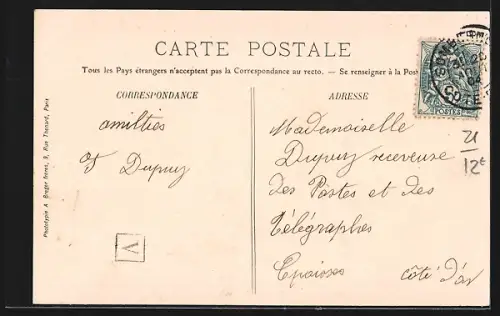 CARTE POSTALE
Tous les Pays étrangers n'acceptent pas la Correspondance au recto. — Se renseigner à la Post
CORRESPONDANCE
amitiés
Dupuy
ADRESSE
Mademoiselle
Dupuy receveuse
des Postes et des
Télégraphes
Epoisses
côte d'or
POSTES
COTE
21
12€
V
Phototypie A. Breger frères, 9, Rue Thénard, Paris